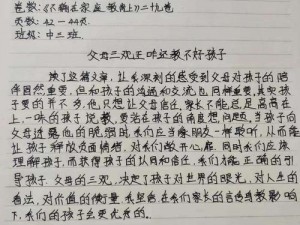 卷数：《不输在家庭教育上》二十九卷
页数：42-44页
班级：中三班
父母三观正咋还教不好孩子
读了这篇文章，让我深刻的感受到父母对孩子的陪
伴固然重要，但和孩子的沟通和交流也同样重要，其实孩
子要的并不多，他只想让父母信任，家长不能总是高高在
上，一味的孩子说教，要站在孩子的角度想问题，当孩子向
父母透露他的脆弱时，我们应当像朋友一样聆听，从而能
让孩子释放负面情绪，对我们敞开心扉，同时我们应该
理解孩子，而获得孩子的认同和信任，我们才能正确的引
导孩子，父母的三观，决定了孩子对世界的眼光，对人生的
看法，对价值的衡量，我坚信在我们家长的言传身教影响
下，我们的孩子会更优秀的。